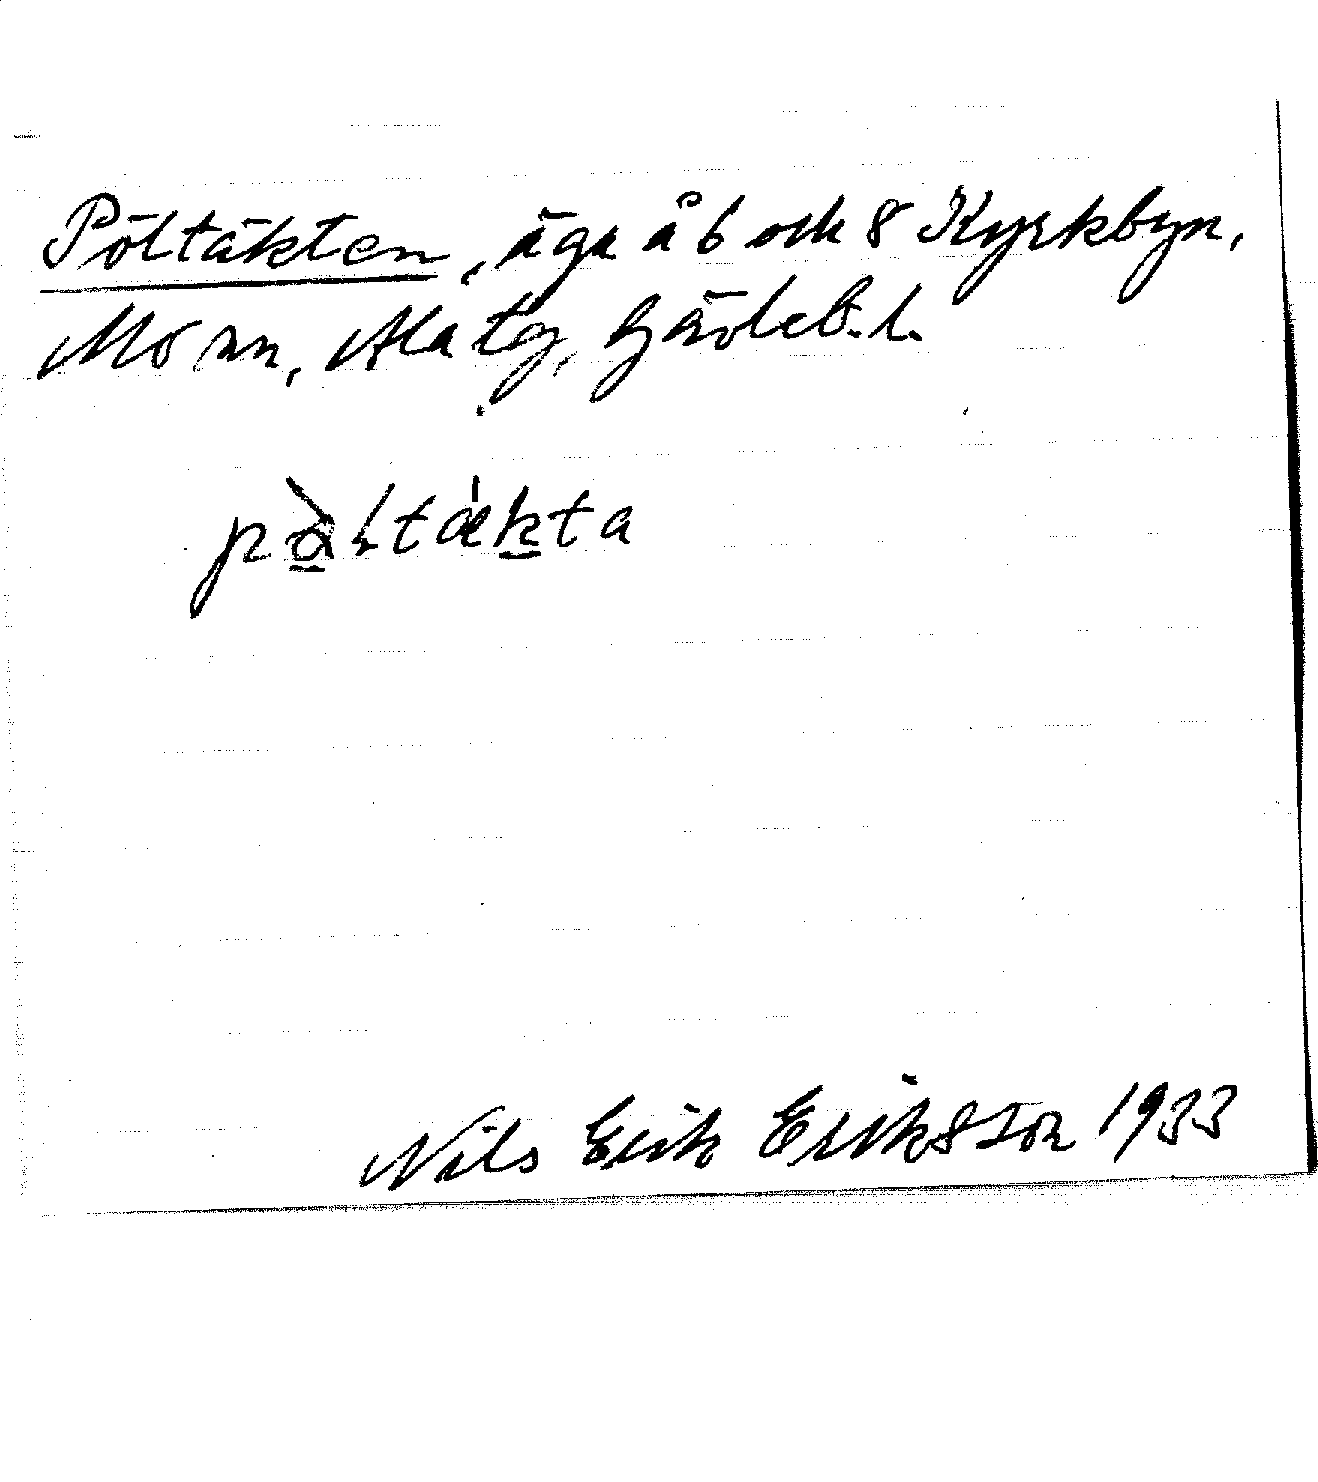 Pöltäkten, äga å 6 och 8 Kyrkbyn,
Mo sn, Ala tg, Gävleb. l.
pòltækta
Nils Erik Eriksson 1933